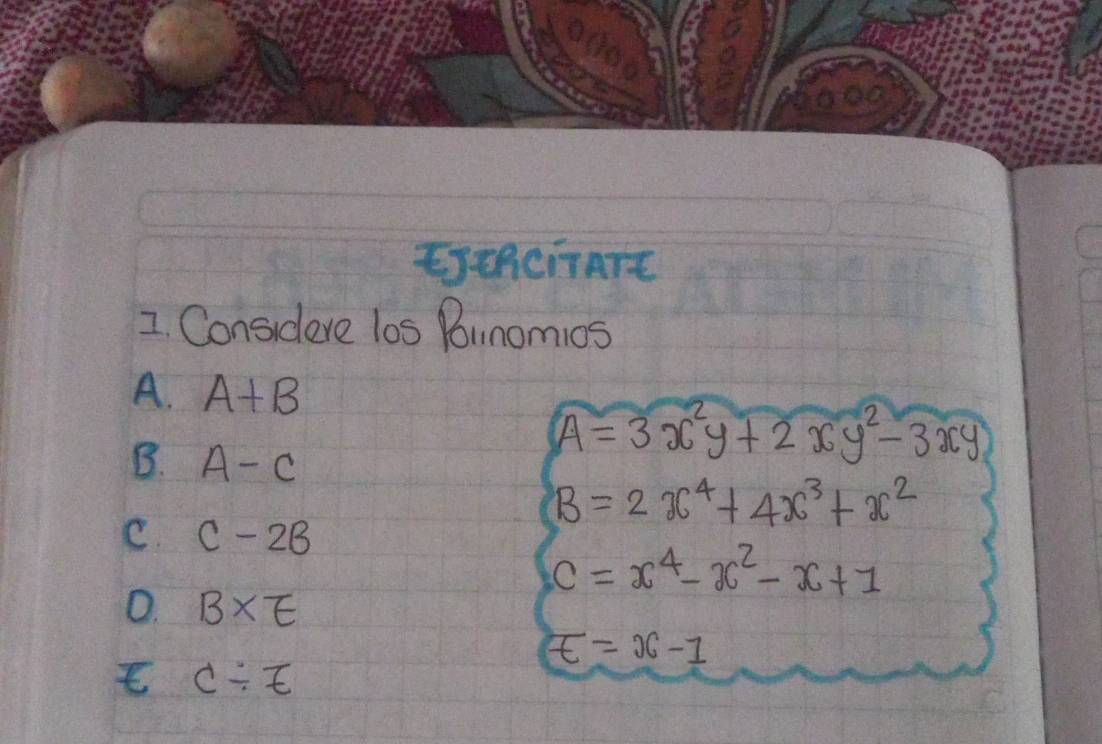 EJERCÍTATE
1. Considere los Polinomios
A. A+B
B. A-C
C. C-2B
D. B×E
E C÷E
A = 3x²y + 2xy² - 3xy
B = 2x⁴ + 4x³ + x²
C = x⁴ - x² - x + 1
E = x - 1